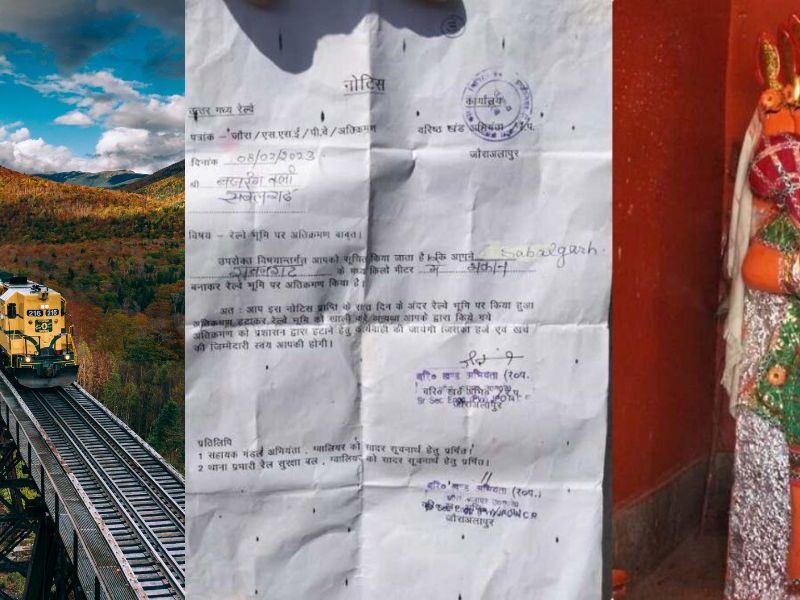 216 216
नोटिस
उत्तर मध्य रेल्वे
कार्यालय
पत्रांक - जौरा/एस.एस.ई/पी.वे/अतिक्रमण
वरिष्ठ खंड अभियंता
जौराअलापुर
दिनांक 08/02/2023
श्री बजरंग बली
सबलगढ़
विषय - रेल्वे भूमि पर अतिक्रमण बाबत।
उपरोक्त विषयान्तर्गत आपको सूचित किया जाता है कि आपने Sabalgarh
सबलगढ़ के मध्य किलो मीटर में मकान
बनाकर रेल्वे भूमि पर अतिक्रमण किया है।
अतः आप इस नोटिस प्राप्ति के सात दिन के अंदर रेल्वे भूमि पर किया हुआ
अतिक्रमण हटाकर रेल्वे भूमि को खाली करें अन्यथा आपके द्वारा किये गये
अतिक्रमण को प्रशासन द्वारा हटाने हेतु कार्यवाही की जायेगी जिसका हर्ज एवं खर्च
की जिम्मेदारी स्वयं आपकी होगी।
वरि० खण्ड अभियंता (र०प०)
जौराअलापुर
प्रतिलिपि
1 सहायक मंडल अभियंता, ग्वालियर को सादर सूचनार्थ हेतु प्रेषित।
2 थाना प्रभारी रेल सुरक्षा बल, ग्वालियर को सादर सूचनार्थ हेतु प्रेषित।
वरि० खण्ड अभियंता (र०प०)
जौराअलापुर